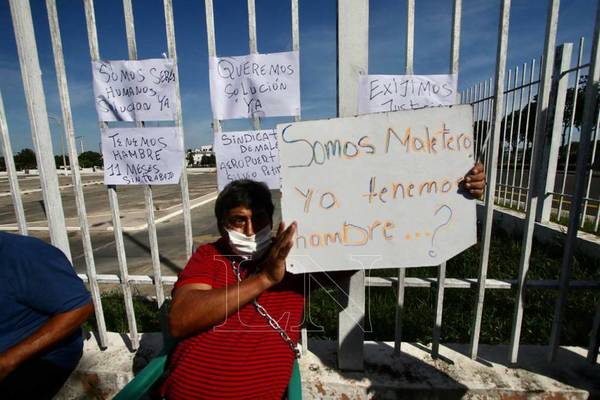 SOMOS SERES
HUMANOS
SOLUCIÓN YA
QUEREMOS
SOLUCIÓN
YA
EXIJIMOS
TENEMOS
HAMBRE
11 MESES
SIN TRABAJO
AEROPUERTO
Somos Maletero
ya tenemos
hambre...?
LN